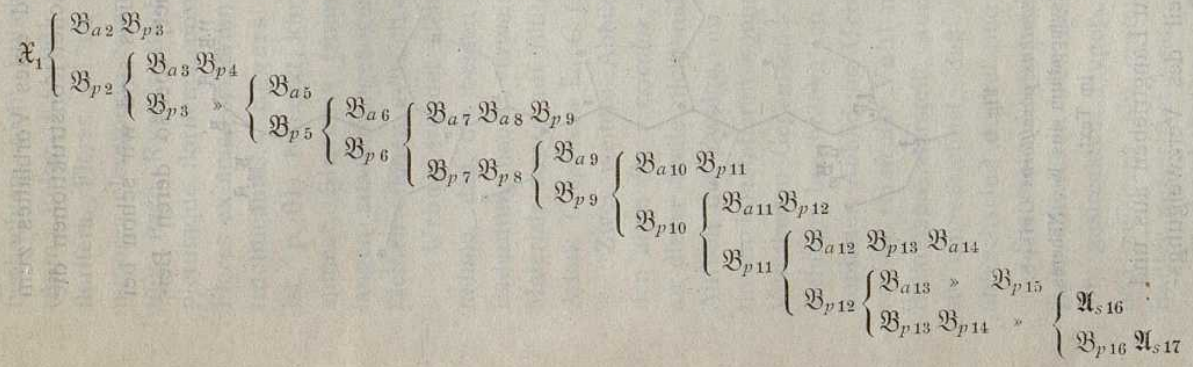 𝔅a2 𝔅p3
𝔛1
𝔅p2 𝔅a3 𝔅p4
𝔅p3 » 𝔅a5
𝔅p5 𝔅a6 𝔅a7 𝔅a8 𝔅p9
𝔅p6
𝔅p7 𝔅p8 𝔅a9
𝔅p9 𝔅a10 𝔅p11
𝔅p10 𝔅a11 𝔅p12
𝔅p11 𝔅a12 𝔅p13 𝔅a14
𝔅p12 𝔅a13 » 𝔅p15
𝔅p13 𝔅p14 » 𝔄s16
𝔅p16 𝔄s17